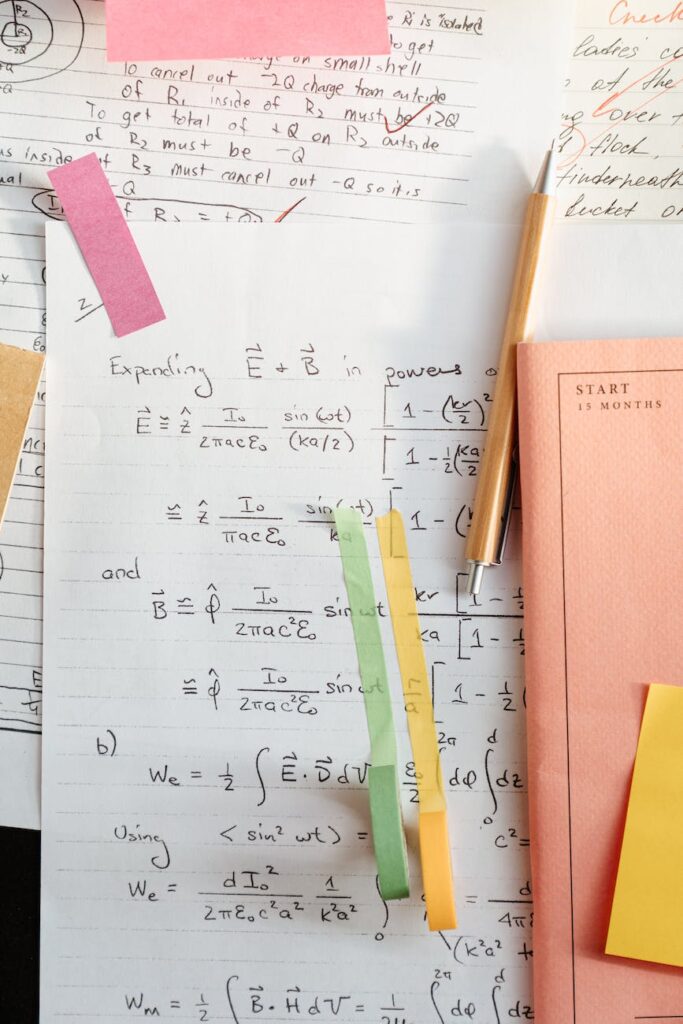 R₂
R₁
-2Q
+Q
R₁ is isolated
to get
on small shell
To cancel out -2Q charge from outside
of R₁ inside of R₂ must be +2Q
To get total of +Q on R₂ outside
of R₂ must be -Q
inside of R₃ must cancel out -Q so it is
-Q
Check
ladies'
at the
over
flock,
underneath
bucket
2
Expending E⃗ + B⃗ in powers
E⃗ ≅ ẑ I₀/(2πacε₀) sin(ωt)/(ka/2) [1-(kr/2)²]/[1-½(ka/2
≅ ẑ I₀/(πacε₀) sin(ωt)/ka [1-(
and
B⃗ ≅ φ̂ I₀/(2πac²ε₀) sin ωt kr/ka [1-½]/[1-½]
≅ φ̂ I₀/(2πac²ε₀) sin ωt [1-½(
b)
We = ½ ∫ E⃗·D⃗ dV ε₀/2 ∫ 2π dφ ∫₀ᵈ dz
Using <sin² ωt> = c² =
We = dI₀²/(2πε₀c²a²) 1/(k²a²) ∫₀ = d/4πε
(k²a²
Wm = ½ ∫ B⃗·H⃗ dV = 1/2μ ∫ 2π dφ ∫ᵈ dz
START
15 MONTHS